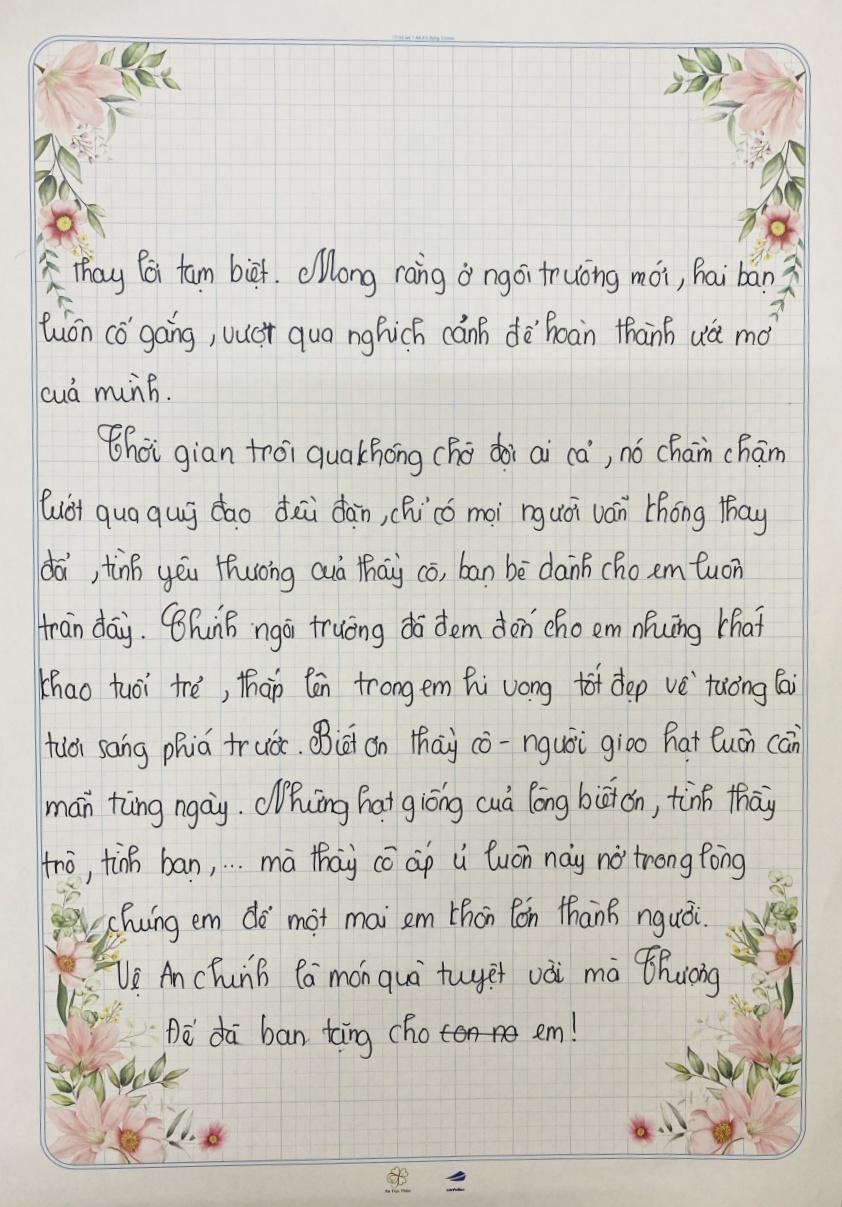 thay lời tạm biệt. Mong rằng ở ngôi trường mới, hai bạn
luôn cố gắng, vượt qua nghịch cảnh để hoàn thành ước mơ
của mình.
Thời gian trôi qua không chờ đợi ai cả, nó chầm chậm
lướt qua quỹ đạo đều đặn, chỉ có mọi người vẫn không thay
đổi, tình yêu thương của thầy cô, bạn bè dành cho em luôn
tràn đầy. Chính ngôi trường đã đem đến cho em những khát
khao tuổi trẻ, thắp lên trong em hi vọng tốt đẹp về tương lai
tươi sáng phía trước. Biết ơn thầy cô - người gieo hạt luôn cần
mẫn từng ngày. Những hạt giống của lòng biết ơn, tình thầy
trò, tình bạn,... mà thầy cô ấp ủ luôn nảy nở trong lòng
chúng em để một mai em khôn lớn thành người.
Vệ An chính là món quà tuyệt vời mà Thượng
Đế đã ban tặng cho con no em!